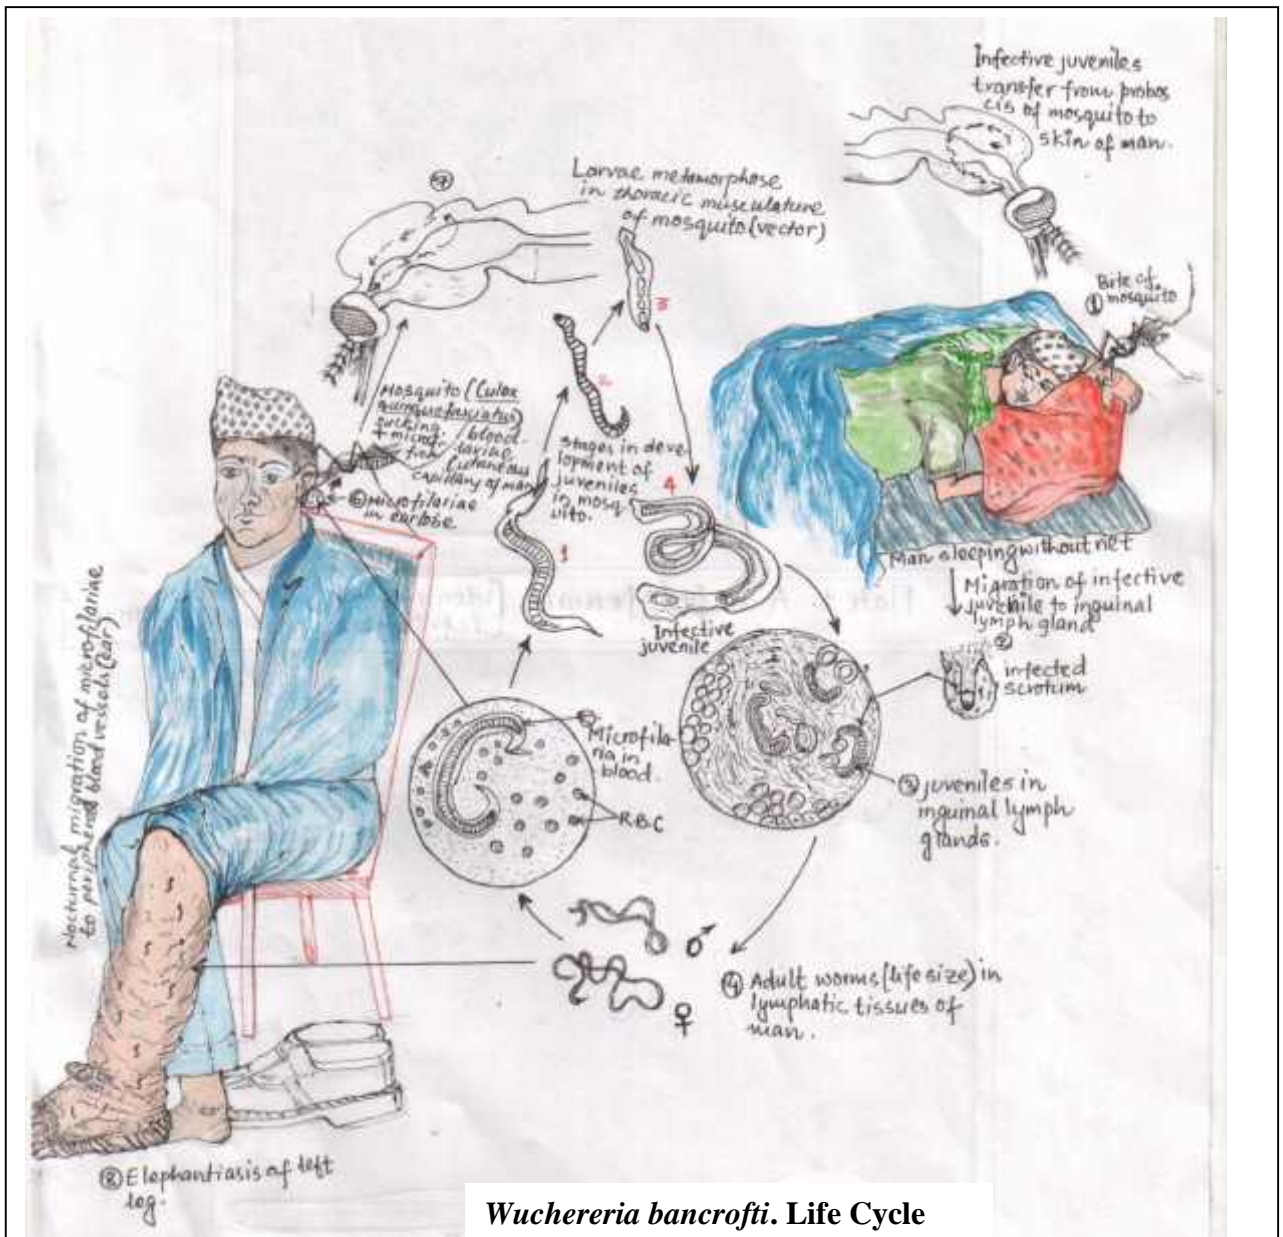 Infective juveniles
transfer from probos
cis of mosquito to
skin of man.
Larvae metamorphose
in thoracic musculature
of mosquito (vector)
⑦
3
Bite of
① mosquito
2
Mosquito (Culex
quinquefasciatus)
sucking blood
+ micro larvae
from cutaneous
capillary of man
⑥ Microfilariae
in earlobe
Stages in deve-
lopment of
juveniles
in mosq
uito.
4
1
Man sleeping without net
Migration of infective
juvenile to inguinal
lymph gland
②
Infective
juvenile
infected
scrotum
Nocturnal migration of microfilariae
to peripheral blood vessels (ear)
Microfila-
ria in
blood.
R.B.C
③ juveniles in
inguinal lymph
glands.
♂
♀
④ Adult worms (life size) in
lymphatic tissues of
man.
⑧ Elephantiasis of left
leg.
Wuchereria bancrofti. Life Cycle